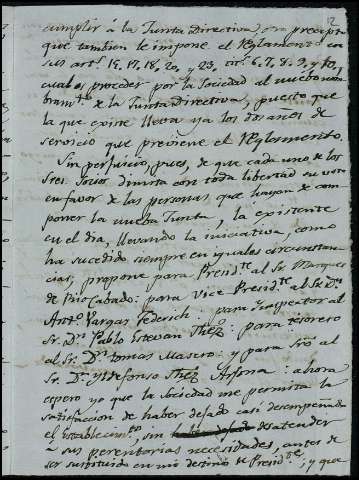 12
cumplir á la Junta directiva, un precepto
que tambien le impone el Reglamento en
sus art.s 15, 17, 18, 20, y 23, tit.s 6, 7, 8, 9, y 10,
cual es proceder por la Sociedad al nuevo nom-
bram.to de la Junta directiva, puesto que
la que existe lleva ya los dos años de
servicio que previene el Reglamento.
Sin perjuicio, pues, de que cada uno de los
Sres. Socios dimita con toda libertad su voto
en favor de las personas que hayan de com-
poner la nueva Junta, la existente
en el dia, llevando la iniciativa, como
ha sucedido siempre en iguales circunstan-
cias, propone para Presid.te al Sr. Marques
de Rio Cabado: para Vice Presid.te al Sr. D.n
Ant.o Vargas Federich: para Inspector al
Sr. D.n Pablo Estevan : para tesorero
al Sr. D.n Tomas Masero: y para Srio al
Sr. D. Yldefonso Arjona: ahora
espero yo que la Sociedad me permita la
satisfaccion de haber dejado casi desempeñado
el Establecim.to, sin desatender
á sus perentorias necesidades, antes de
ser sustituido en mi destino de Presid.te; y que